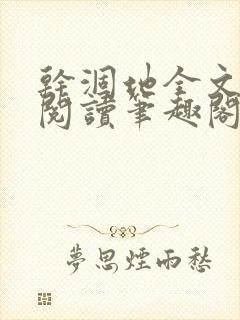 幹涸地全文
閱讀筆趣閣
夢思煙雨愁